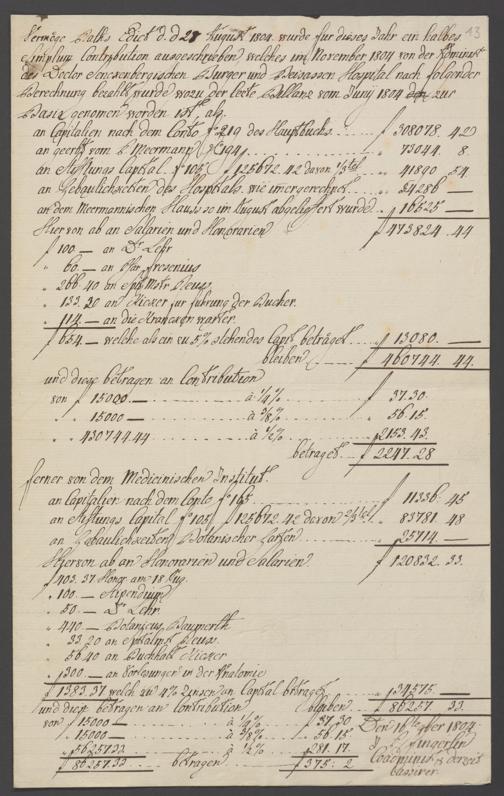 13
Vermöge Raths Edict d.d. 28 August 1804 wurde für dieses Jahr ein halbes
Simplum Contribution ausgeschrieben welches im November 1804 von der Administ
des Doctor Senckenbergischen Burger und Beisassen Hospital nach folgender
Berechnung bezahlt wurde wozu der letzte Ballanz vom Juny 1804 zur
Basis genomen worden ist, als.
an Capitalien nach dem Conto f° 219 des Hauptbuchs f 308078. 42
an geerbt vom Meermann f° 194 " 73044. 8.
an Stiftungs Capital f° 105 f 125672. 42 davon 1/3tel " 41890 54
an Gebäulichkeiten des Hospitals wie " 34286 —
an dem Meermannischen Hauss so im August abgeliefert wurde " 16525 —
Hiervon ab an Salarien und Honorarien f 473824. 44
f 100 — an Dr Lehr
" 60 — an Pfar Fresenius
" 266 40 an Reuss
" 133. 20 an Kiexer für führung der Bücher
" 114 — an die Krancken wärter
f 654 — welche als ein zu 5% stehendes Capt beträget f 13080. —
bleiben f 460744. 44.
und diese betragen an Contribution
von f 15000 — à 1/4% f 37.30
" " 15000 — à 3/8% " 56.15.
" " 430744.44 à 1/2% " 2153.43.
betraget f 2247.28
ferner von dem Medicinischen Institut.
an Capitalien nach dem Conto f° 165 f 11336. 45
an Stiftungs Capital f° 105 f 125672. 42 davon 2/3tel " 83781. 48
an Gebäulichkeiten Botanischer Garten " 25714. —
Hiervon ab an Honorarien und Salarien f 120832. 33.
f 403. 37 Honor am 18 Aug.
" 100 — Stipendium
" 50 — Dr Lehr
" 440 — Botanicus
" 33. 20 an Reuss
" 56.40 an Buchhalt Kiexer
" 300 — an Vorlesungen in der Anatomie
f 1383.37 welch zu 4% Zinsen an Capital betraget " 34575. —
und diese betragen an Contribution bleiben f 86257 33
von f 15000 — à 1/4% f 37,30
" 15000 — à 3/8% " 56.15
" 56257.33 à 1/2% " 281.17.
f 86257.33 betragen f 375. 2
Den 16 9ber 1804
Coadminist p derzeit
Cassirer